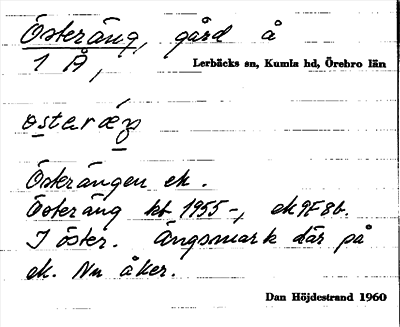 Österäng, gård å
1 Å,
Lerbäcks sn, Kumla hd, Örebro län
österäŋ
Österängen ek.
Österäng kb 1955-, ek 9F8b.
I öster. Ängsmark där på
ek. Nu åker.
Dan Höjdestrand 1960